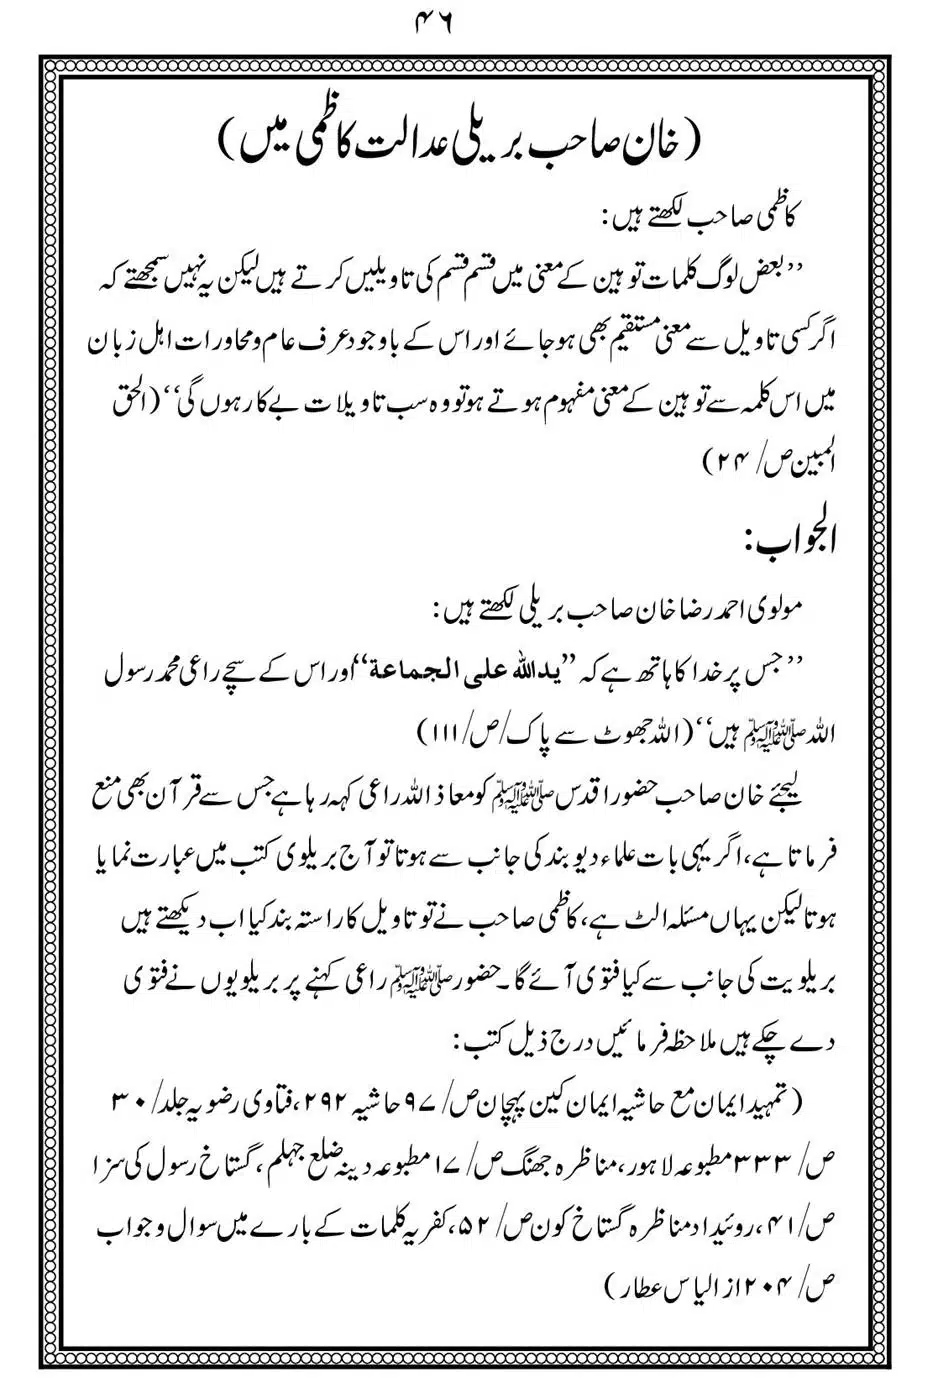 ۴۶
(خان صاحب بریلی عدالت کاظمی میں)
کاظمی صاحب لکھتے ہیں:
’’بعض لوگ کلمات توہین کے معنی میں قسم قسم کی تاویلیں کرتے ہیں لیکن یہ نہیں سمجھتے کہ
اگر کسی تاویل سے معنی مستقیم بھی ہوجائے اور اس کے باوجود عرف عام و محاورات اہل زبان
میں اس کلمہ سے توہین کے معنی مفہوم ہوتے ہو تو وہ سب تاویلات بے کار ہوں گی‘‘(الحق
المبین ص/۲۴)
الجواب:
مولوی احمد رضا خان صاحب بریلی لکھتے ہیں:
’’جس پر خدا کا ہاتھ ہے کہ ”یداللہ علی الجماعة“اور اس کے سچے راعی محمد رسول
اللہ ﷺ ہیں‘‘(اللہ جھوٹ سے پاک/ص/۱۱۱)
لیجئے خان صاحب حضور اقدس ﷺ کو معاذ اللہ راعی کہہ رہا ہے جس سے قرآن بھی منع
فرماتا ہے،اگر یہی بات علماء دیوبند کی جانب سے ہوتا تو آج بریلوی کتب میں عبارت نمایا
ہوتا لیکن یہاں مسئلہ الٹ ہے،کاظمی صاحب نے تو تاویل کا راستہ بند کیا اب دیکھتے ہیں
بریلویت کی جانب سے کیا فتوی آئے گا۔حضور ﷺ راعی کہنے پر بریلویوں نے فتوی
دے چکے ہیں ملاحظہ فرمائیں درج ذیل کتب:
(تمہید ایمان مع حاشیہ ایمان کین پہچان ص/۹۷ حاشیہ ۲۹۲،فتاوی رضویہ جلد/۳۰
ص/۳۳۳ مطبوعہ لاہور،مناظرہ جھنگ ص/۱۷ مطبوعہ دینہ ضلع جہلم،گستاخ رسول کی سزا
ص/۴۱،روئیداد مناظرہ گستاخ کون ص/۵۲،کفریہ کلمات کے بارے میں سوال و جواب
ص/۲۰۴ از الیاس عطار)